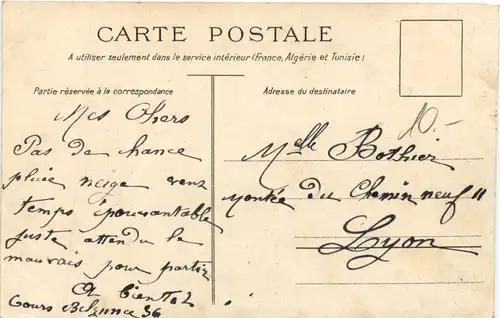 CARTE POSTALE
A utiliser seulement dans le service intérieur (France, Algérie et Tunisie)
Partie réservée à la correspondance
Mes Chers
Pas de chance
pluie neige vent
temps épouvantable
juste attendu le
mauvais pour partir
A bientot
Cours Belzunce 36
Adresse du destinataire
10.-
Melle Bothier
Montée du Chemin neuf 11
Lyon